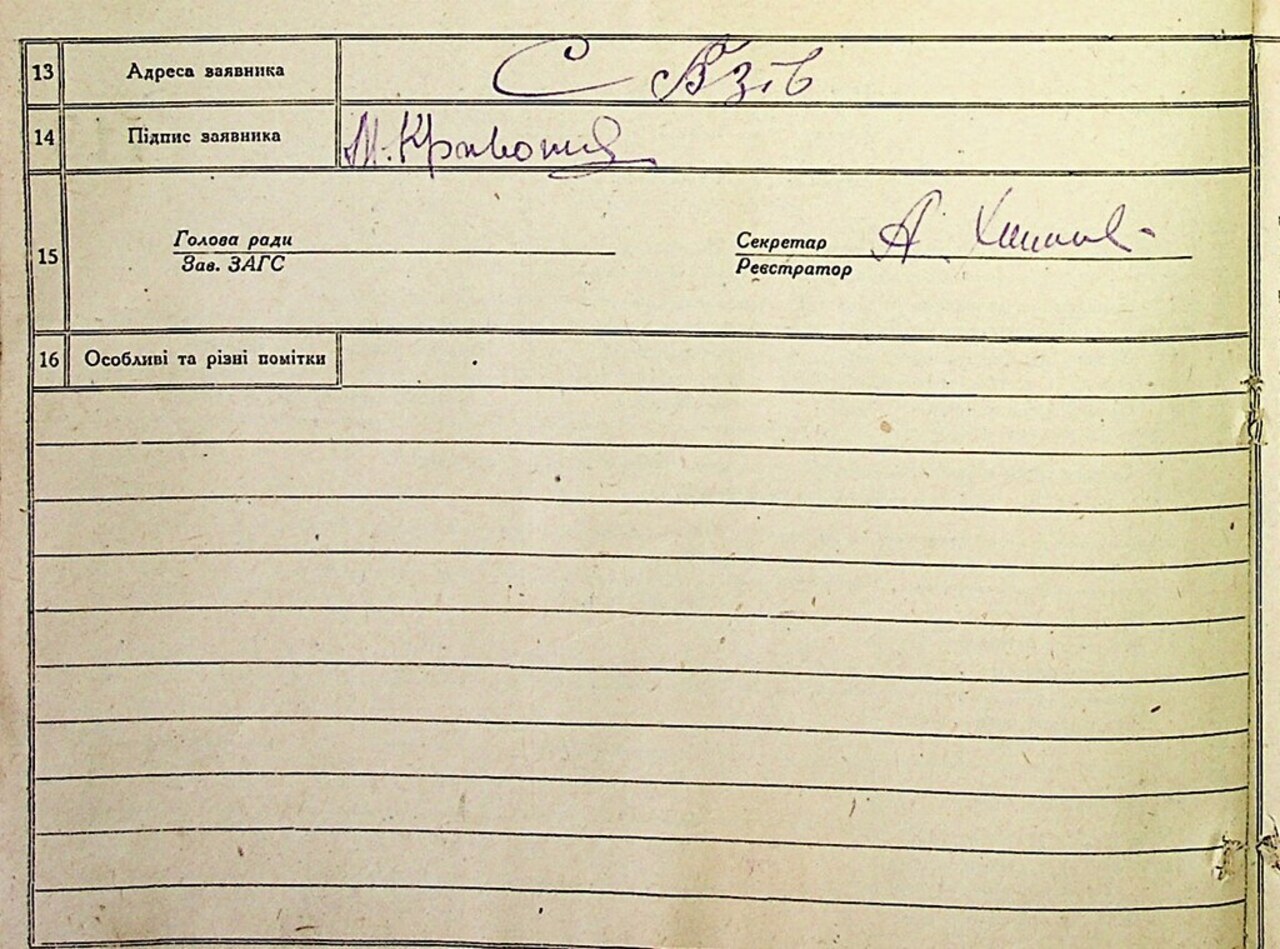 13 Адреса заявника С Взів
14 Підпис заявника М.
15
Голова ради
Зав. ЗАГС
Секретар А
Реєстратор
16 Особливі та різні помітки